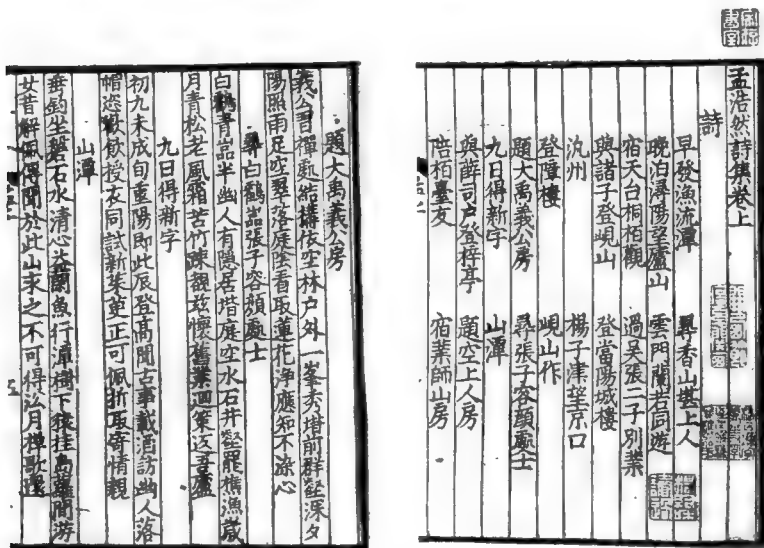 孟浩然詩集卷上
詩
早發漁浦潭 尋香山湛上人
晚泊潯陽望廬山 雲門蘭若同遊
宿天台桐栢觀 過吳張二子別業
與諸子登峴山 登當陽城樓
州 楊子津望京口
登障樓 峴山作
題大禹義公房 尋張子容顏處士
九日得新字 山潭
與薛司户登樟亭 題空上人房
陪栢臺友 宿業師山房
題大禹義公房
義公習禪處結構依空林户外一峯秀堦前群壑深夕
陽照雨足空翠落庭陰看取蓮花淨應知不染心
尋白鶴嵓張子容顏處士
白鶴青嵓半幽人有隱居堦庭空水石林壑罷樵漁歲
月青松老風霜苦竹踈覩兹懷舊業迴策返吾廬
九日得新字
初九未成旬重陽即此辰登高聞古事載酒訪幽人落
帽恣歡飲授衣同試新茱萸正可佩折取寄情親
山潭
垂釣坐磐石水清心益閑魚行潭樹下猿挂島蘿間游
女昔解佩傳聞於此山求之不可得沿月棹歌還